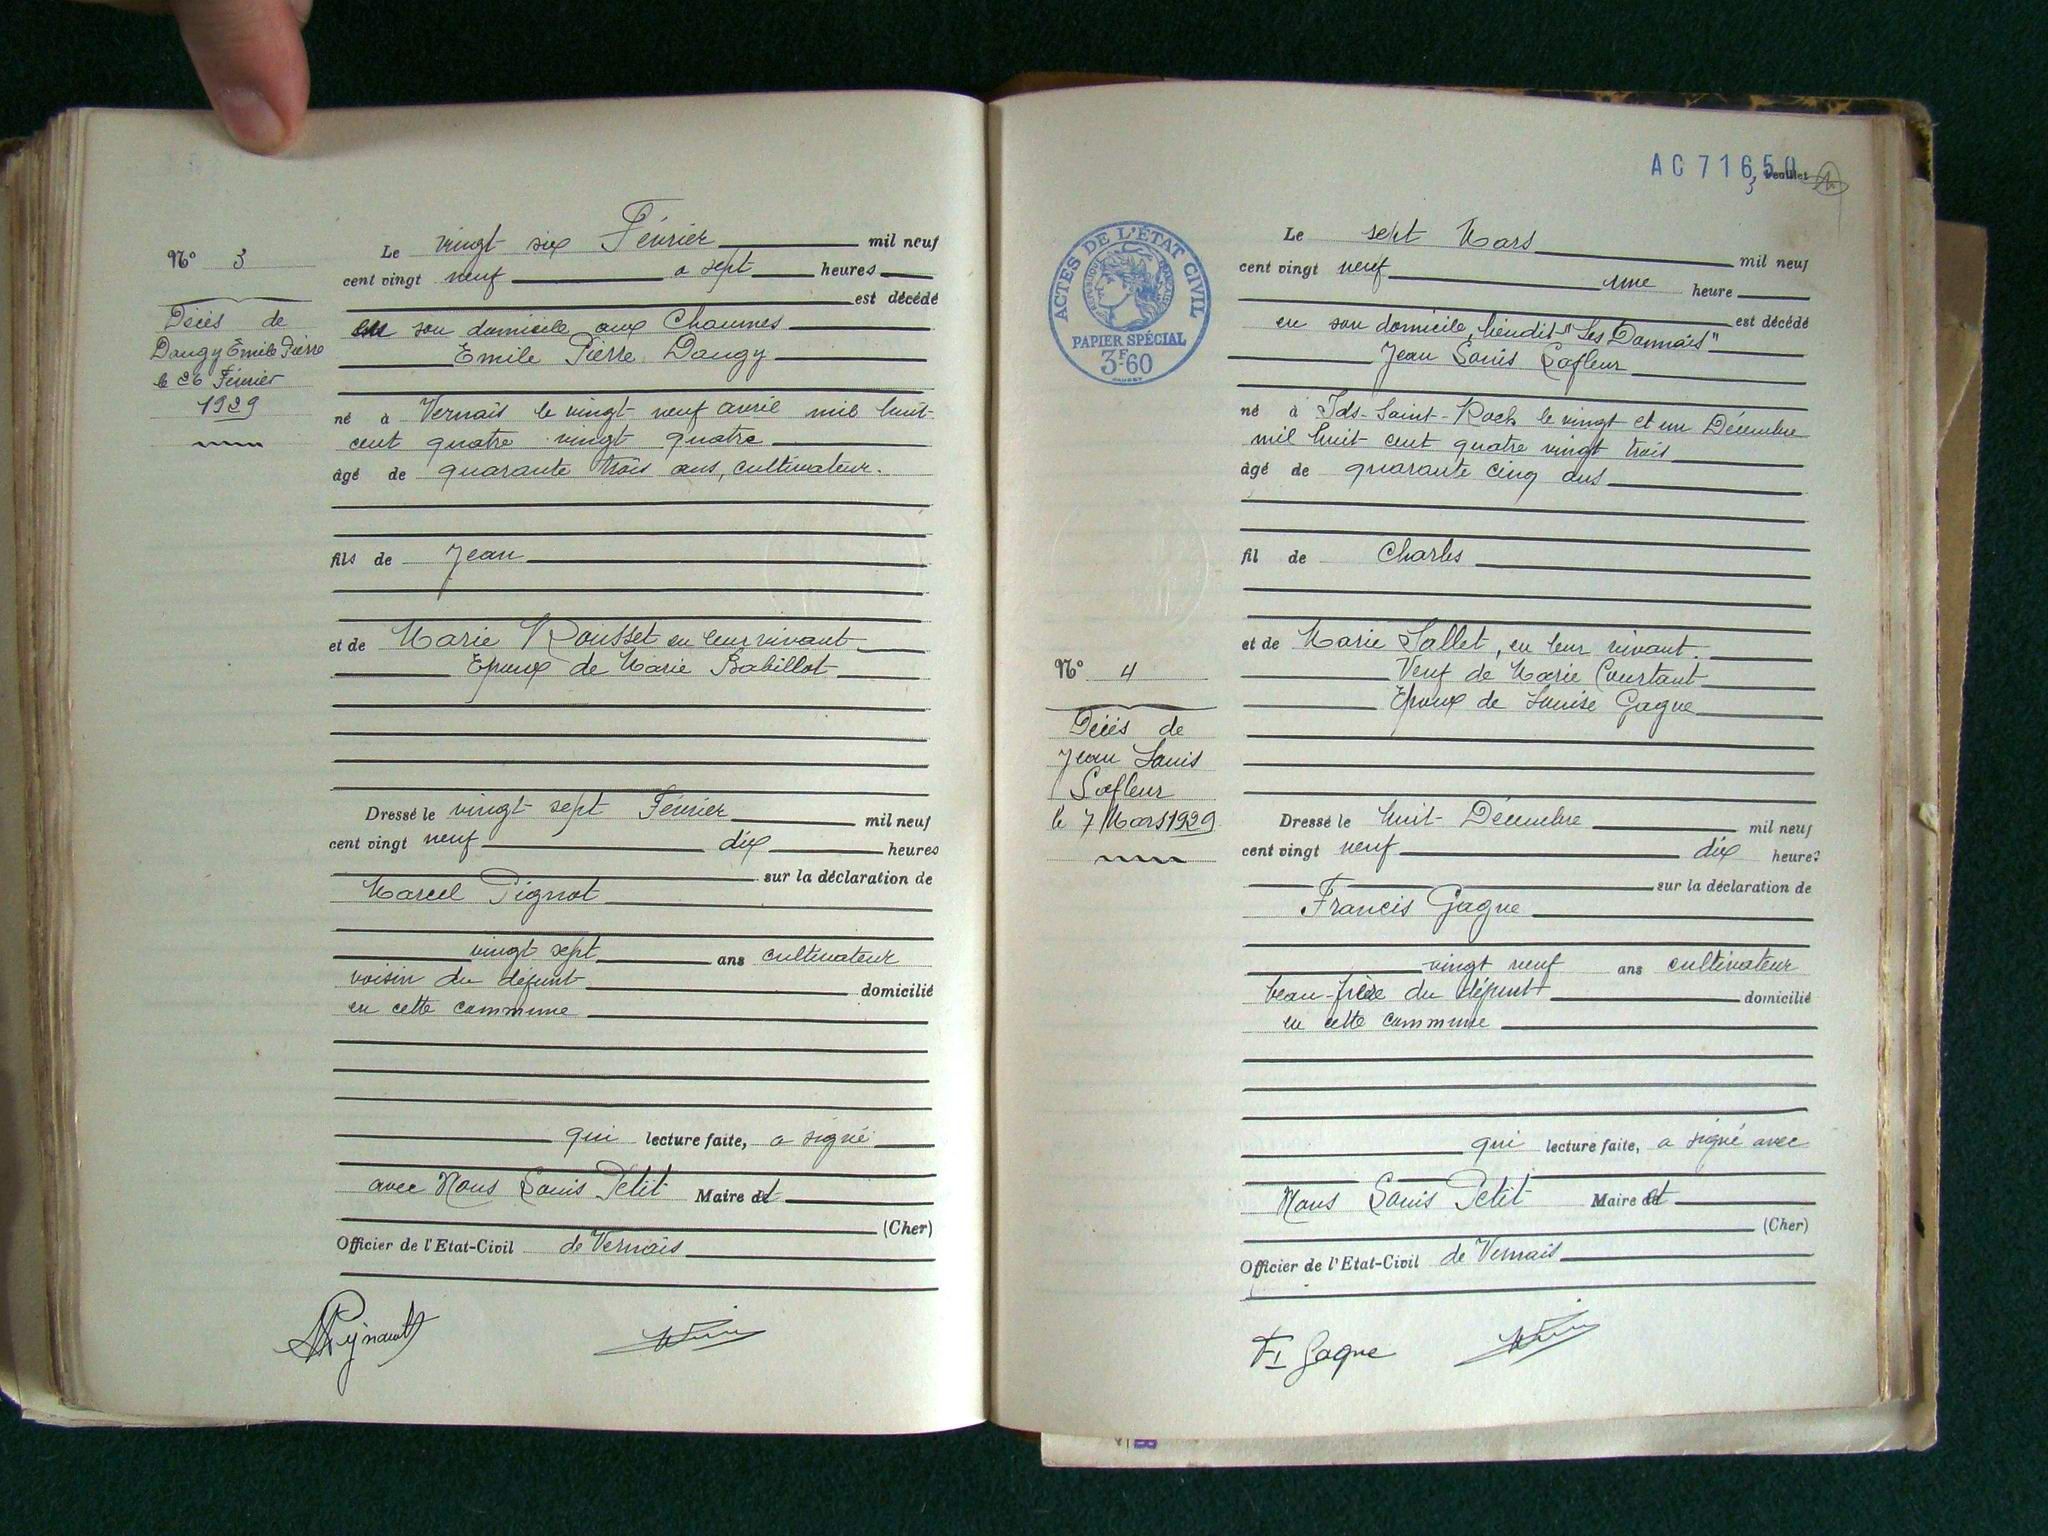 N° 3
Décès de
Daugy Émile Pierre
le 26 Février
1929
Le vingt six Février mil neuf
cent vingt neuf a sept heures
est décédé
en son domicile aux Chaumes
Emile Pierre Daugy
né à Vernais le vingt neuf avril mil huit-
cent quatre vingt quatre
âgé de quarante trois ans, cultivateur.
fils de Jean
et de Marie Rousset en leur vivant
Epoux de Marie Babillot
Dressé le vingt sept Février mil neuf
cent vingt neuf dix heures
sur la déclaration de
Marcel Pignot
vingt sept ans cultivateur
voisin du défunt domicilié
en cette commune
qui lecture faite, a signé
avec Nous Louis Petit Maire et
(Cher)
Officier de l'Etat-Civil de Vernais
AC 71650
Feuillet
ACTES DE L'ÉTAT CIVIL
RÉPUBLIQUE FRANÇAISE
PAPIER SPÉCIAL
3F60
N° 4
Décès de
Jean Louis
Lafleur
le 7 Mars 1929
Le sept Mars mil neuf
cent vingt neuf une heure
est décédé
en son domicile, lieudit "Les Dannais"
Jean Louis Lafleur
né à Ids-Saint-Roch le vingt et un Décembre
mil huit cent quatre vingt trois
âgé de quarante cinq ans
fil de Charles
et de Marie Sallet, en leur vivant.
Veuf de Marie Courtant
Epoux de Louise Gagne
Dressé le huit Décembre mil neuf
cent vingt neuf dix heures
sur la déclaration de
Francis Gagne
vingt neuf ans cultivateur
beau-frère du défunt domicilié
en cette commune
qui lecture faite, a signé avec
Nous Louis Petit Maire et
(Cher)
Officier de l'Etat-Civil de Vernais
Gagne